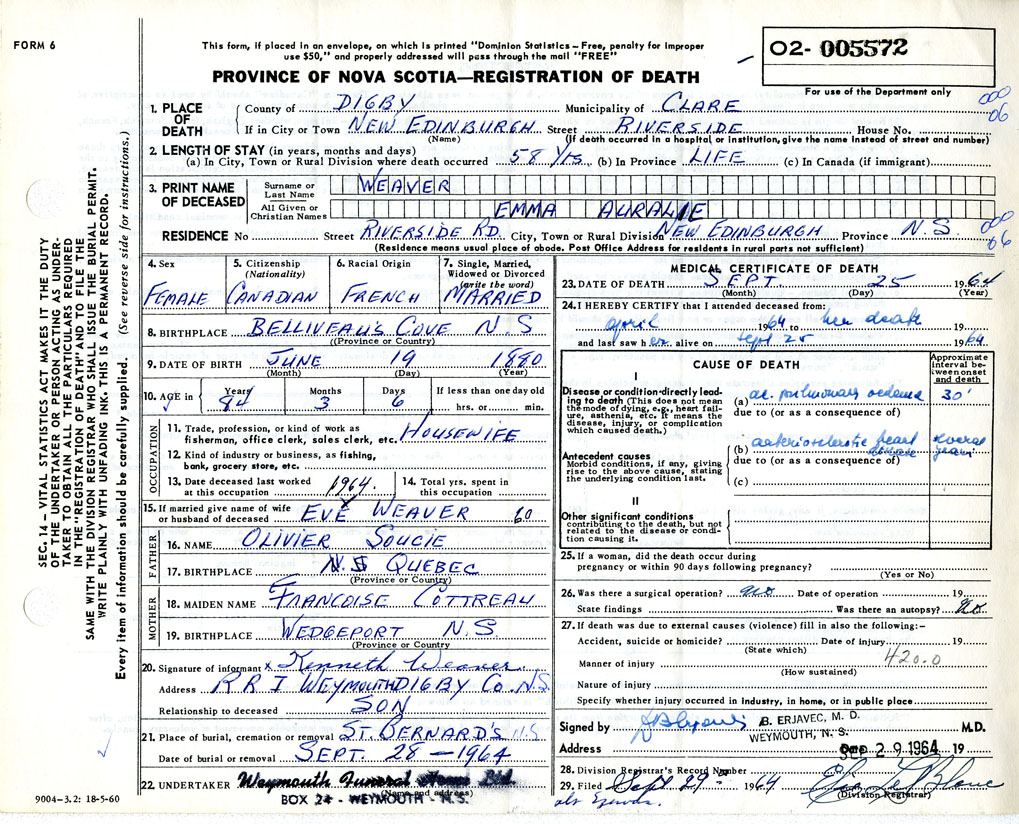 FORM 6
This form, if placed in an envelope, on which is printed "Dominion Statistics – Free, penalty for improper
use $50," and properly addressed will pass through the mail "FREE"
PROVINCE OF NOVA SCOTIA—REGISTRATION OF DEATH
02- 005572
For use of the Department only
SEC. 14 – VITAL STATISTICS ACT MAKES IT THE DUTY
OF THE UNDERTAKER OR PERSON ACTING AS UNDER-
TAKER TO OBTAIN ALL THE PARTICULARS REQUIRED
IN THE "REGISTRATION OF DEATH" AND TO FILE THE
SAME WITH THE DIVISION REGISTRAR WHO SHALL ISSUE THE BURIAL PERMIT.
WRITE PLAINLY WITH UNFADING INK. THIS IS A PERMANENT RECORD.
Every item of information should be carefully supplied. (See reverse side for instructions.)
1. PLACE OF DEATH
County of DIGBY Municipality of CLARE
000 06
If in City or Town NEW EDINBURGH Street RIVERSIDE House No.
(Name) (If death occurred in a hospital or institution, give the name instead of street and number)
2. LENGTH OF STAY (in years, months and days)
(a) In City, Town or Rural Division where death occurred 58 Yrs. (b) In Province LIFE (c) In Canada (if immigrant)
3. PRINT NAME OF DECEASED
Surname or Last Name WEAVER
All Given or Christian Names EMMA AURALIE
RESIDENCE No Street RIVERSIDE RD. City, Town or Rural Division NEW EDINBURGH Province N.S.
000 06
(Residence means usual place of abode. Post Office Address for residents in rural parts not sufficient)
4. Sex FEMALE
5. Citizenship (Nationality) CANADIAN
6. Racial Origin FRENCH
7. Single, Married, Widowed or Divorced (write the word) MARRIED
8. BIRTHPLACE BELLIVEAU'S COVE N S
(Province or Country)
9. DATE OF BIRTH JUNE 19 1880
(Month) (Day) (Year)
10. AGE in Years 84 Months 3 Days 6 If less than one day old hrs. or min.
OCCUPATION
11. Trade, profession, or kind of work as
fisherman, office clerk, sales clerk, etc. HOUSEWIFE
12. Kind of industry or business, as fishing,
bank, grocery store, etc.
13. Date deceased last worked
at this occupation 1964.
14. Total yrs. spent in
this occupation
15. If married give name of wife
or husband of deceased EVE WEAVER 60
FATHER
16. NAME OLIVIER SOUCIE
17. BIRTHPLACE N.S QUEBEC
(Province or Country)
MOTHER
18. MAIDEN NAME FRANCOISE COTTREAU
19. BIRTHPLACE WEDGEPORT N.S
(Province or Country)
20. Signature of informant x Kenneth Weaver
Address R R I WEYMOUTH DIGBY Co. N.S.
Relationship to deceased SON
21. Place of burial, cremation or removal ST. BERNARD'S N.S
Date of burial or removal SEPT. 28 – 1964
22. UNDERTAKER Weymouth Funeral Home Ltd.
(Name and address)
BOX 24 - WEYMOUTH - N.S.
9004–3.2: 18-5-60
MEDICAL CERTIFICATE OF DEATH
23. DATE OF DEATH SEPT. 25 1964
(Month) (Day) (Year)
24. I HEREBY CERTIFY that I attended deceased from:
april 1964 to her death 19
and last saw her alive on sept 25 1964
CAUSE OF DEATH
Approximate interval between onset and death
I
Disease or condition directly leading to death (This does not mean the mode of dying, e.g., heart failure, asthenia, etc. It means the disease, injury, or complication which caused death.)
(a) ac. pulmonary oedema 30'
due to (or as a consequence of)
Antecedent causes
Morbid conditions, if any, giving rise to the above cause, stating the underlying condition last.
(b) arteriosclerotic heart disease several years
due to (or as a consequence of)
(c)
II
Other significant conditions
contributing to the death, but not related to the disease or condition causing it.
25. If a woman, did the death occur during
pregnancy or within 90 days following pregnancy?
(Yes or No)
26. Was there a surgical operation? no Date of operation 19
State findings Was there an autopsy? no
27. If death was due to external causes (violence) fill in also the following:–
Accident, suicide or homicide? Date of injury 19
(State which)
420.0
Manner of injury
(How sustained)
Nature of injury
Specify whether injury occurred in industry, in home, or in public place
Signed by B. ERJAVEC, M. D. M.D.
WEYMOUTH, N. S.
Address 29.1964 19
28. Division Registrar's Record Number
29. Filed Sept 29 1964
(Division Registrar)